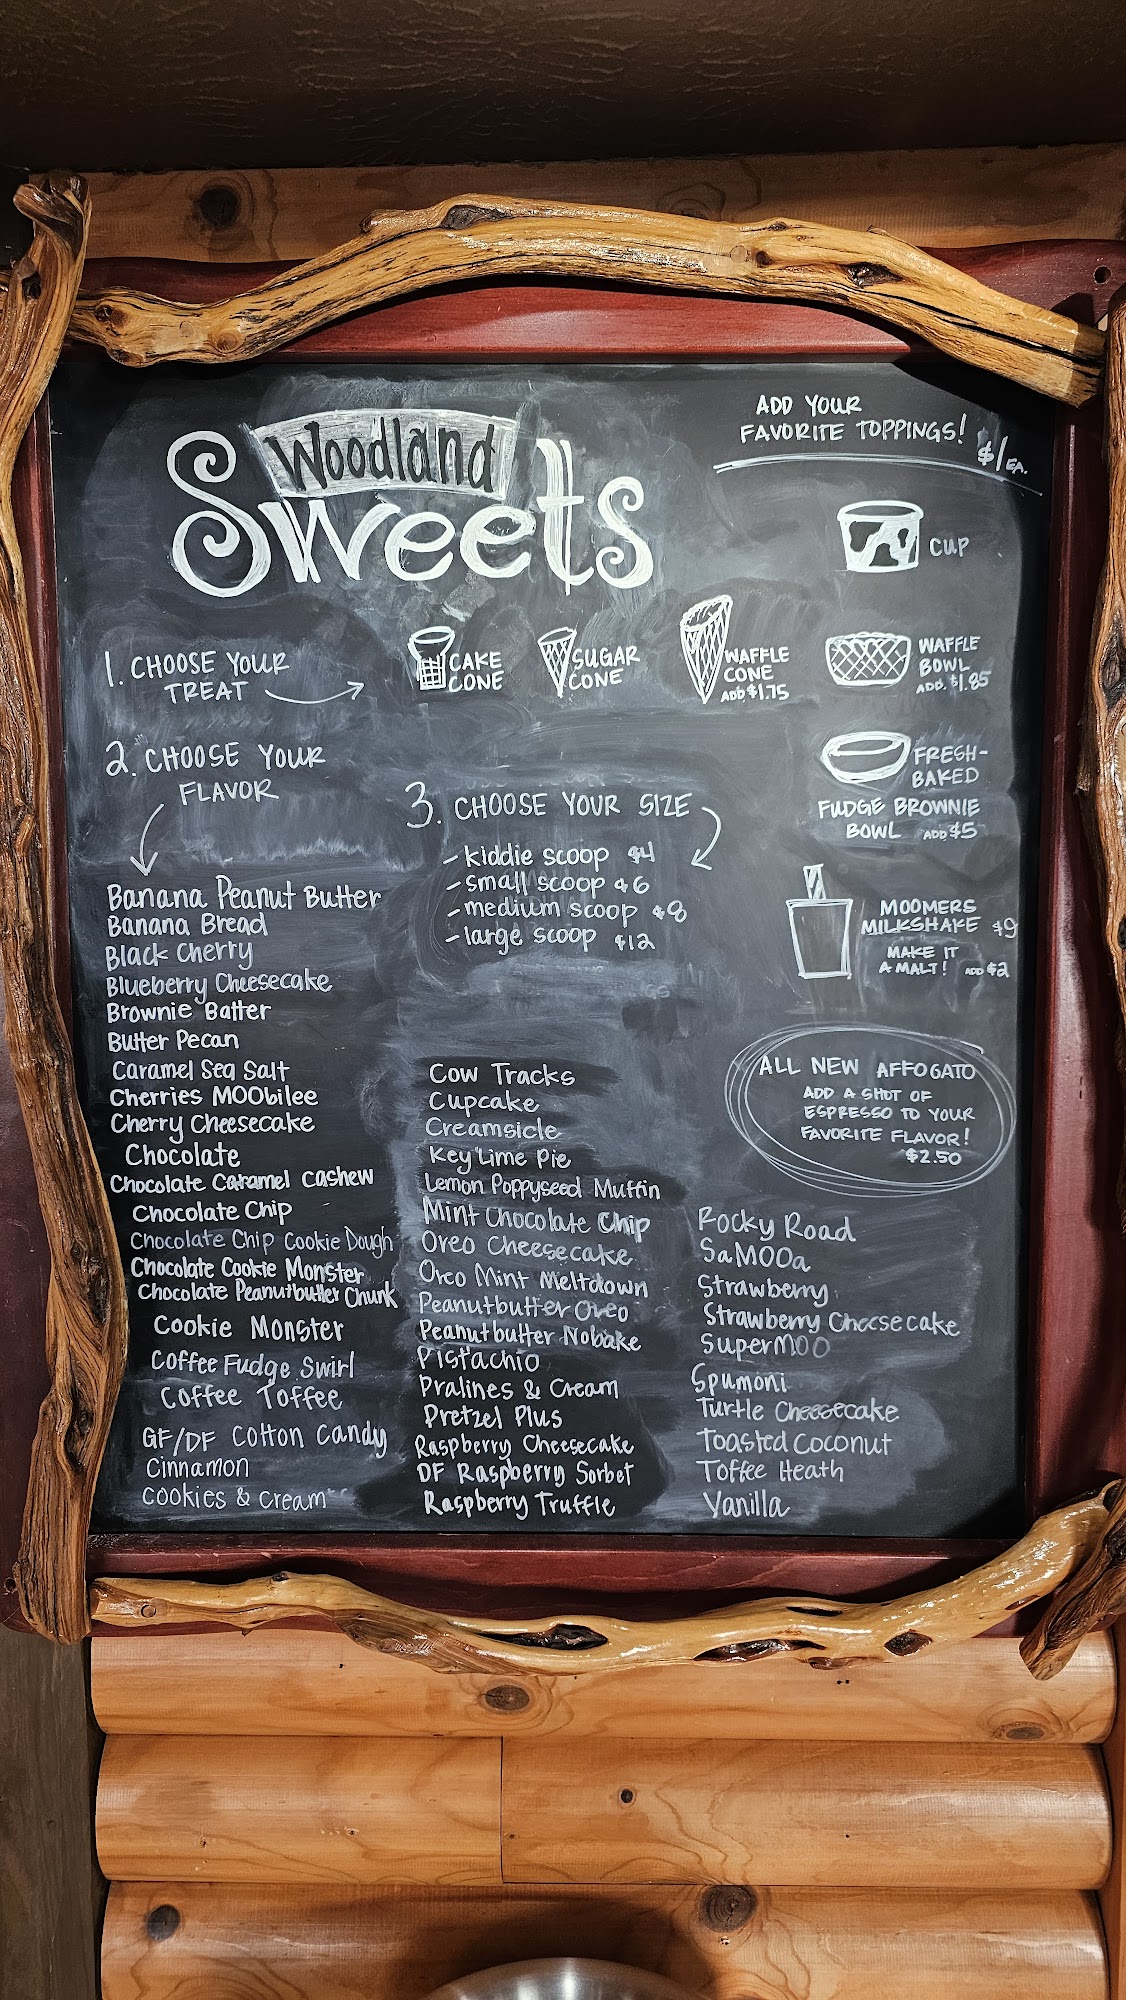 Woodland
Sweets
ADD YOUR
FAVORITE TOPPINGS!
$1 EA.
CUP
1. CHOOSE YOUR
TREAT
CAKE
CONE
SUGAR
CONE
WAFFLE
CONE
ADD $1.75
WAFFLE
BOWL
ADD $1.85
FRESH-
BAKED
FUDGE BROWNIE
BOWL ADD $5
MOOMERS
MILKSHAKE $9
MAKE IT
A MALT! ADD $2
ALL NEW AFFOGATO
ADD A SHOT OF
ESPRESSO TO YOUR
FAVORITE FLAVOR!
$2.50
2. CHOOSE YOUR
FLAVOR
3. CHOOSE YOUR SIZE
- kiddie scoop $4
- small scoop $6
- medium scoop $8
- large scoop $12
Banana Peanut Butter
Banana Bread
Black Cherry
Blueberry Cheesecake
Brownie Batter
Butter Pecan
Caramel Sea Salt
Cherries MOObilee
Cherry Cheesecake
Chocolate
Chocolate Caramel Cashew
Chocolate Chip
Chocolate Chip Cookie Dough
Chocolate Cookie Monster
Chocolate Peanutbutter Chunk
Cookie Monster
Coffee Fudge Swirl
Coffee Toffee
GF/DF Cotton Candy
Cinnamon
Cookies & Cream
Cow Tracks
Cupcake
Creamsicle
Key Lime Pie
Lemon Poppyseed Muffin
Mint Chocolate Chip
Oreo Cheesecake
Oreo Mint Meltdown
Peanutbutter Oreo
Peanutbutter Nobake
Pistachio
Pralines & Cream
Pretzel Plus
Raspberry Cheesecake
DF Raspberry Sorbet
Raspberry Truffle
Rocky Road
SaMOOa
Strawberry
Strawberry Cheesecake
SuperMOO
Spumoni
Turtle Cheesecake
Toasted Coconut
Toffee Heath
Vanilla